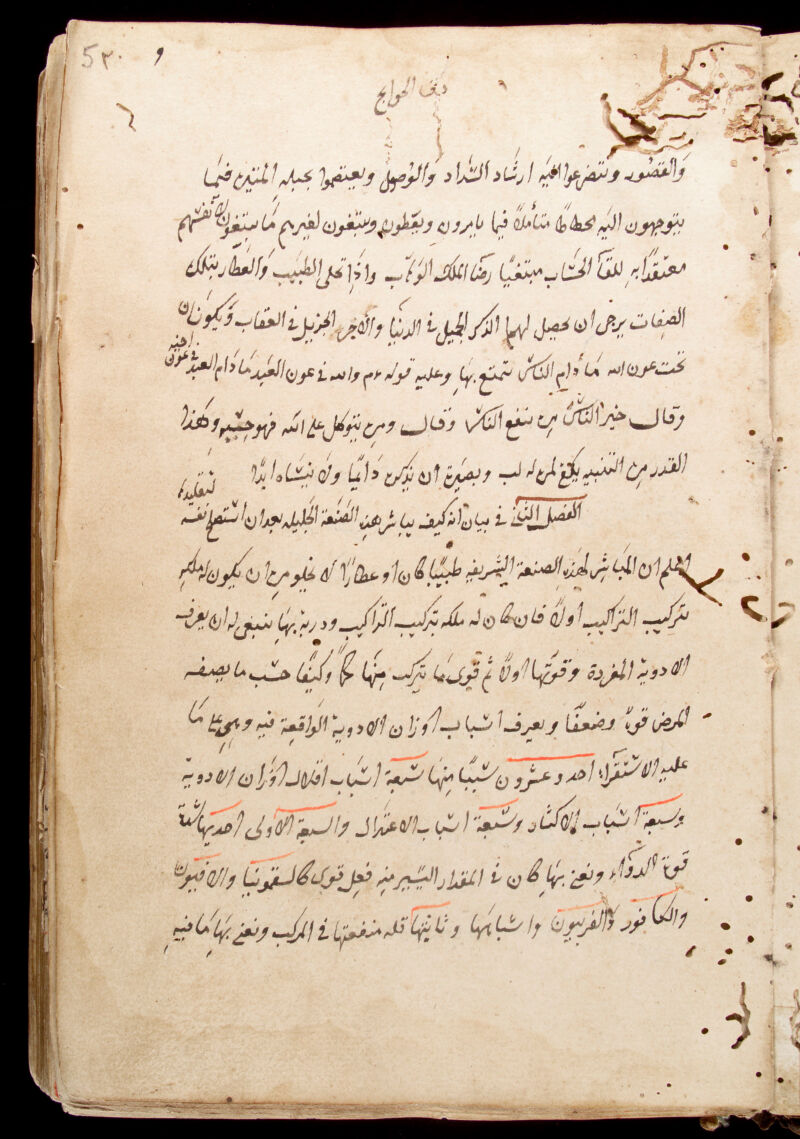 ٥٣٠ و
والقصور ويتضرعوا اليه ارشاد السداد والوصول ويعتصموا بحبله المتين فيما
يتوجهون اليه متأملا فيما يامرون ويعطون ويبتغون لغيرهم ما يبتغون لانفسهم
معتقدا به للقآ الحساب مبتغيا رضآ الملك الوهاب واذا تحلى الطبيب والعطار بتلك
الصفات يرجى ان يحصل لهما الذكر الجميل فى الدنيا والاجر الجزيل فى العقاب ويكونان
تحت عون الله ما دام الناس تتمتع بها وعليه قوله عم والله فى عون العبد مادام العبد فى عون اخيه
وقال خير الناس من ينفع الناس وقال ومن يتوكل على الله فهو حسبه وهذا
القدر من التنبيه يكفى لمن له لب وبصيرة ان يذكره دائما ولا ينساه ابدا
الفصل الثانى فى بيان انه كيف يباشر هذه الصنعة الجليله بعد ان استصلح نفسه لتقليده
اعلم ان المباشر لهذه الصنعة الشريفه طبيبا كان او عطارا لا يخلو من ان يكون له ملكه
تركيب التراكيب اولا فان كان له ملكه تركيب التراكيب ودربة بها ينبغى له ان يعرف
الادوية المفردة وقوتها اولا ثم قوى ما تركب منها كما وكيفا حسب ما يصفه
المرض قوة وضعفا ويعرف اسباب اوزان الادوية الواقعة فيه وهى على ما
عليه الاستقراء احد وعشرون سببا منها سبعة اسباب اقلال اوزان الادوية
وسبعة اسباب الاكثار وسبعة اسباب الاعتدال والسبعة الاولى احديها شدة
قوة الدواء ونعنى بها كان فى المقدار اليسير منه فعل قوى كالسقمونيا والافيون
والكافور والفربيون واشباهها وثانيتها قلة منفعتها فى المركب ونعنى بها ما فيه